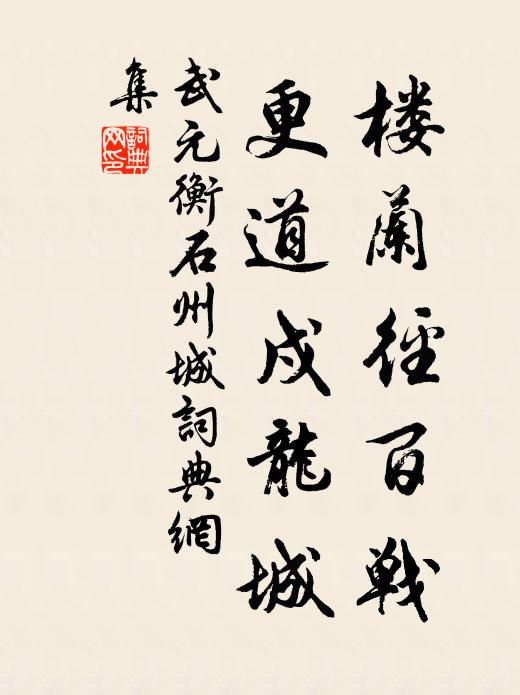 楼蘭徑百戦
更道戍龍城
武元衡石州城詞典網
集
詞典
网印